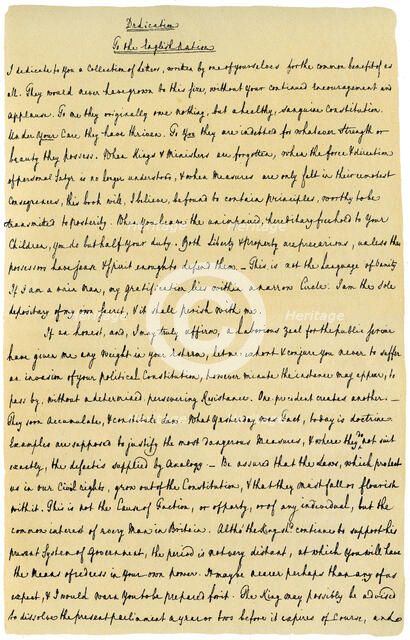 Dedication
To the English Nation
I dedicate to You a Collection of Letters, written by one of yourselves for the common benefit of us
all. They would never have grown to this size, without Your continued encouragement and
applause. To me they originally owe nothing, but a healthy, sanguine Constitution.
Under Your Care they have thriven. To You they are indebted for whatever strength or
beauty they possess. When Kings & Ministers are forgotten, when the force & direction
of personal Satyr is no longer understood, & when Measures are only felt in their remotest
Consequences, this book will, I believe, be found to contain principles, worthy to be
transmitted to posterity. When You leave the unimpaired, hereditary freehold to Your
Children, You do but half Your duty. Both Liberty & property are precarious, unless the
possessors have sense & spirit enough to defend them. – This is not the language of Vanity
If I am a vain Man, my gratification lies within a narrow Circle. I am the sole
depositary of my own Secret, & it shall perish with me.
If an honest, and, I may truly affirm, a laborious zeal for the public service
have given me any Weight in Your Esteem, let me exhort & conjure You never to suffer
an invasion of Your political Constitution, however minute the instance may appear, to
pass by, without a determined, persevering Resistance. One precedent creates another. –
They soon accumulate, & constitute Law. What Yesterday was Fact, today is doctrine
Examples are supposed to justify the most dangerous Measures, & where they do not suit
exactly, the defect is supplied by Analogy. – Be assured that the Laws, which protect
us in our Civil rights, grow out of the Constitution, & that they must fall or flourish
with it. This is not the Cause of Faction, or of party, or of any individual, but the
common interest of every Man in Britain. Altho' the King shd. continue to support his
present System of Government, the period is not very distant, at which You will have
the Means of redress in Your own power. It may be nearer perhaps than any of us
expect, & I would warn You to be prepared for it. The King may possibly be advised
to dissolve the present parliament a year or two before it expires of Course, and
Heritage
Heritage
Heritage
Heritage